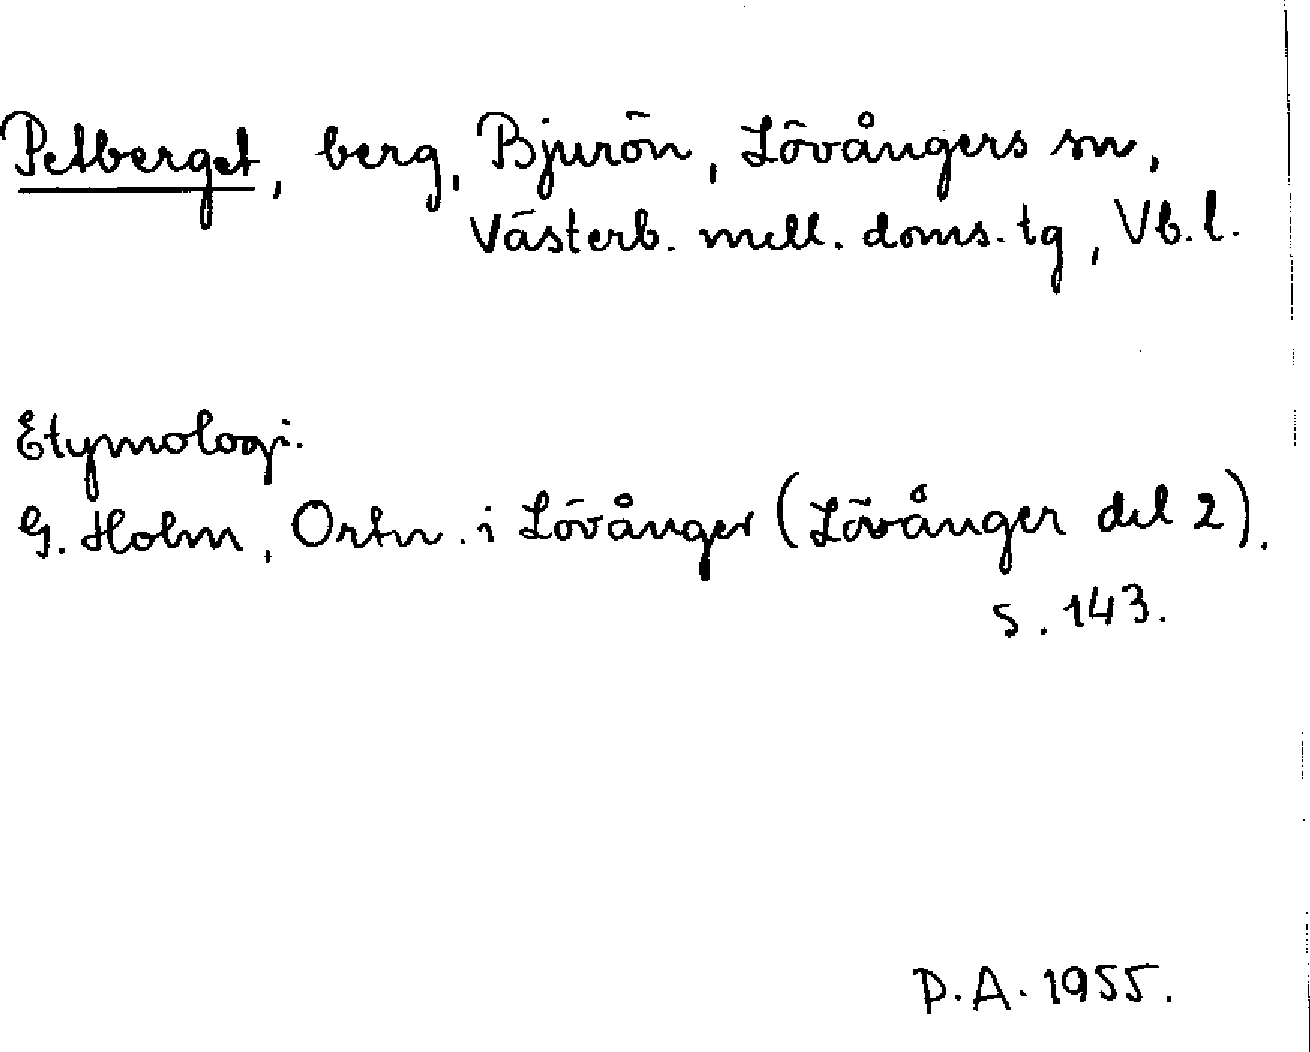 Petberget, berg, Bjurön, Lövångers sn,
Västerb. mell. doms. tg, Vb. l.
Etymologi.
G. Holm, Ortn. i Lövånger (Lövånger del 2).
s. 143.
D.A. 1955.